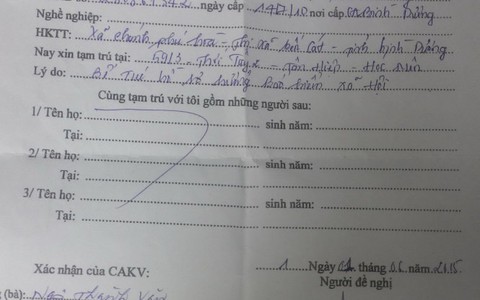 ngày cấp 14D/10 nơi cấp CA Bình Dương
Nghề nghiệp:
HKTT: Xã chanh phú hoà - Thị xã bến Cát - tỉnh bình Dương
Nay xin tạm trú tại: Thới Tây - Tân Hiệp - Hóc Môn
Lý do: Bổ Túc hồ sơ hưởng bảo hiểm xã Hội
Cùng tạm trú với tôi gồm những người sau:
1/ Tên họ: sinh năm:
Tại:
2/ Tên họ: sinh năm:
Tại:
3/ Tên họ: sinh năm:
Tại:
1 Ngày 01 tháng 06 năm 2015
Xác nhận của CAKV: Người đề nghị
(bà): Thanh